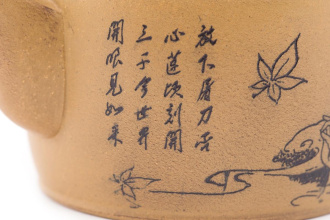 放下屠刀
心蓮頃刻開
三千世界
開眼見如來